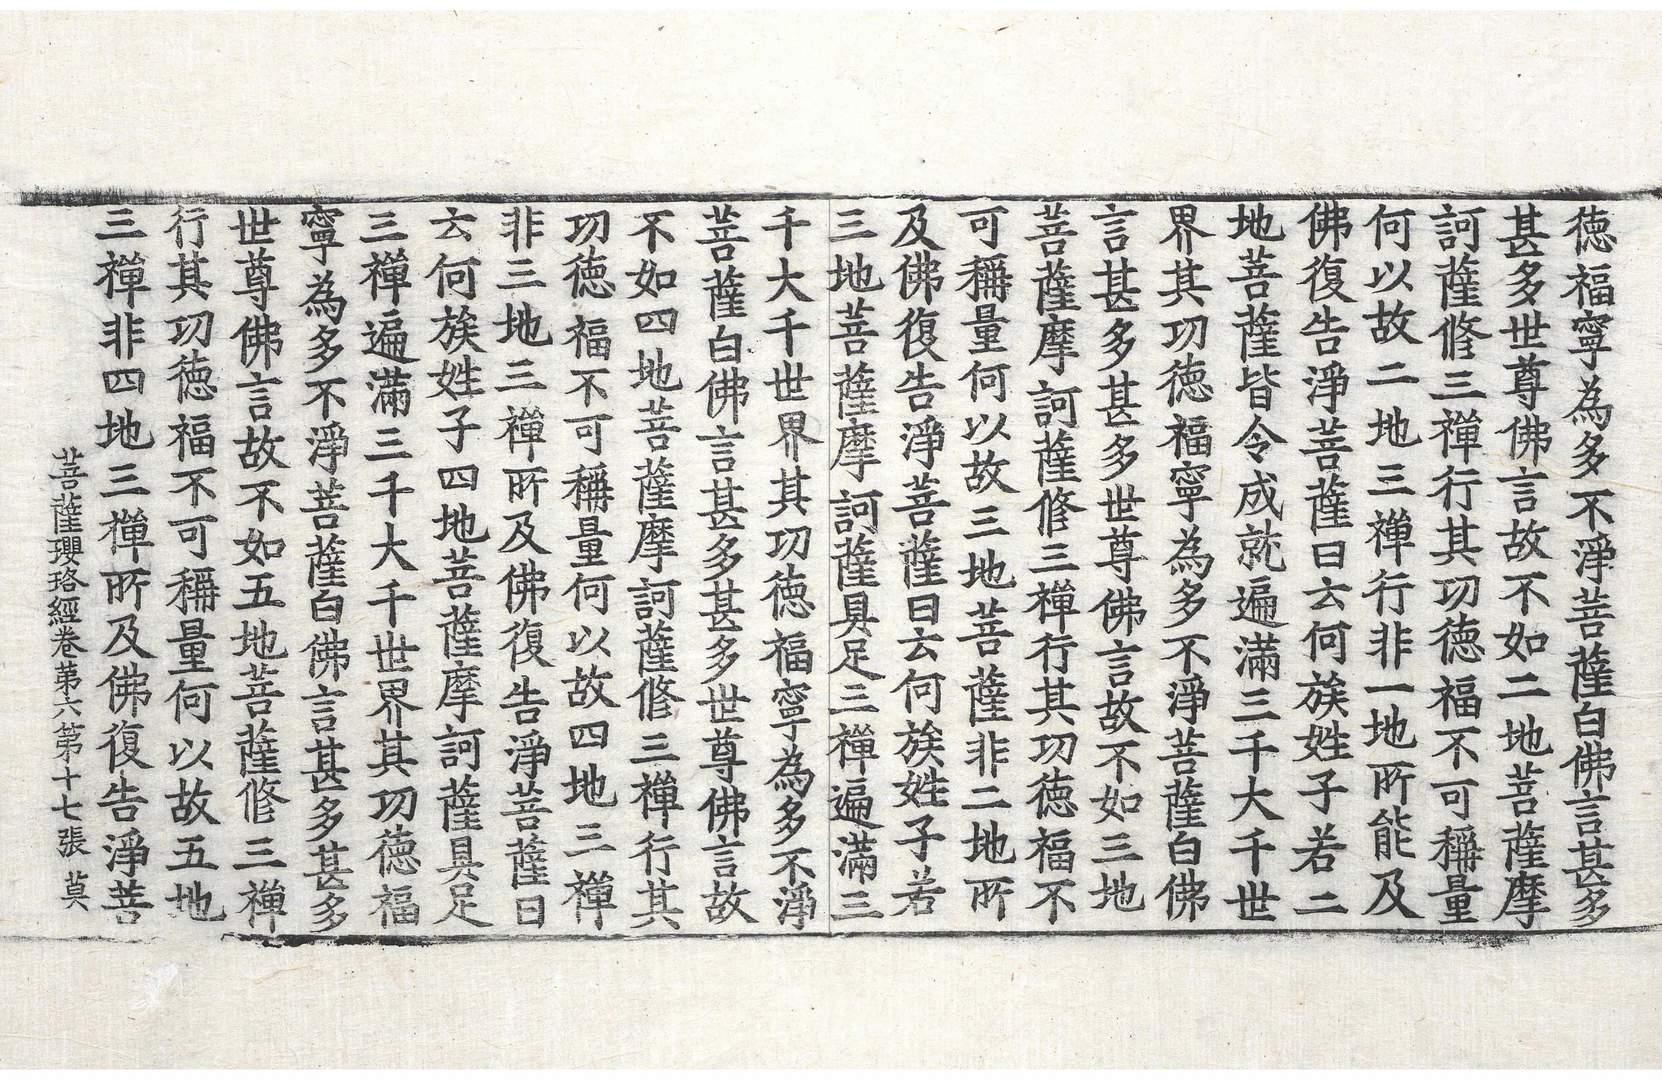 德福寧為多不淨菩薩白佛言甚多
甚多世尊佛言故不如二地菩薩摩
訶薩修三禪行其功德福不可稱量
何以故二地三禪行非一地所能及
佛復告淨菩薩曰云何族姓子若二
地菩薩皆令成就遍滿三千大千世
界其功德福寧為多不淨菩薩白佛
言甚多甚多世尊佛言故不如三地
菩薩摩訶薩修三禪行其功德福不
可稱量何以故三地菩薩非二地所
及佛復告淨菩薩曰云何族姓子若
三地菩薩摩訶薩具足三禪遍滿三
千大千世界其功德福寧為多不淨
菩薩白佛言甚多甚多世尊佛言故
不如四地菩薩摩訶薩修三禪行其
功德福不可稱量何以故四地三禪
非三地三禪所及佛復告淨菩薩曰
云何族姓子四地菩薩摩訶薩具足
三禪遍滿三千大千世界其功德福
寧為多不淨菩薩白佛言甚多甚多
世尊佛言故不如五地菩薩修三禪
行其功德福不可稱量何以故五地
三禪非四地三禪所及佛復告淨菩
菩薩瓔珞經卷第六第十七張 莫